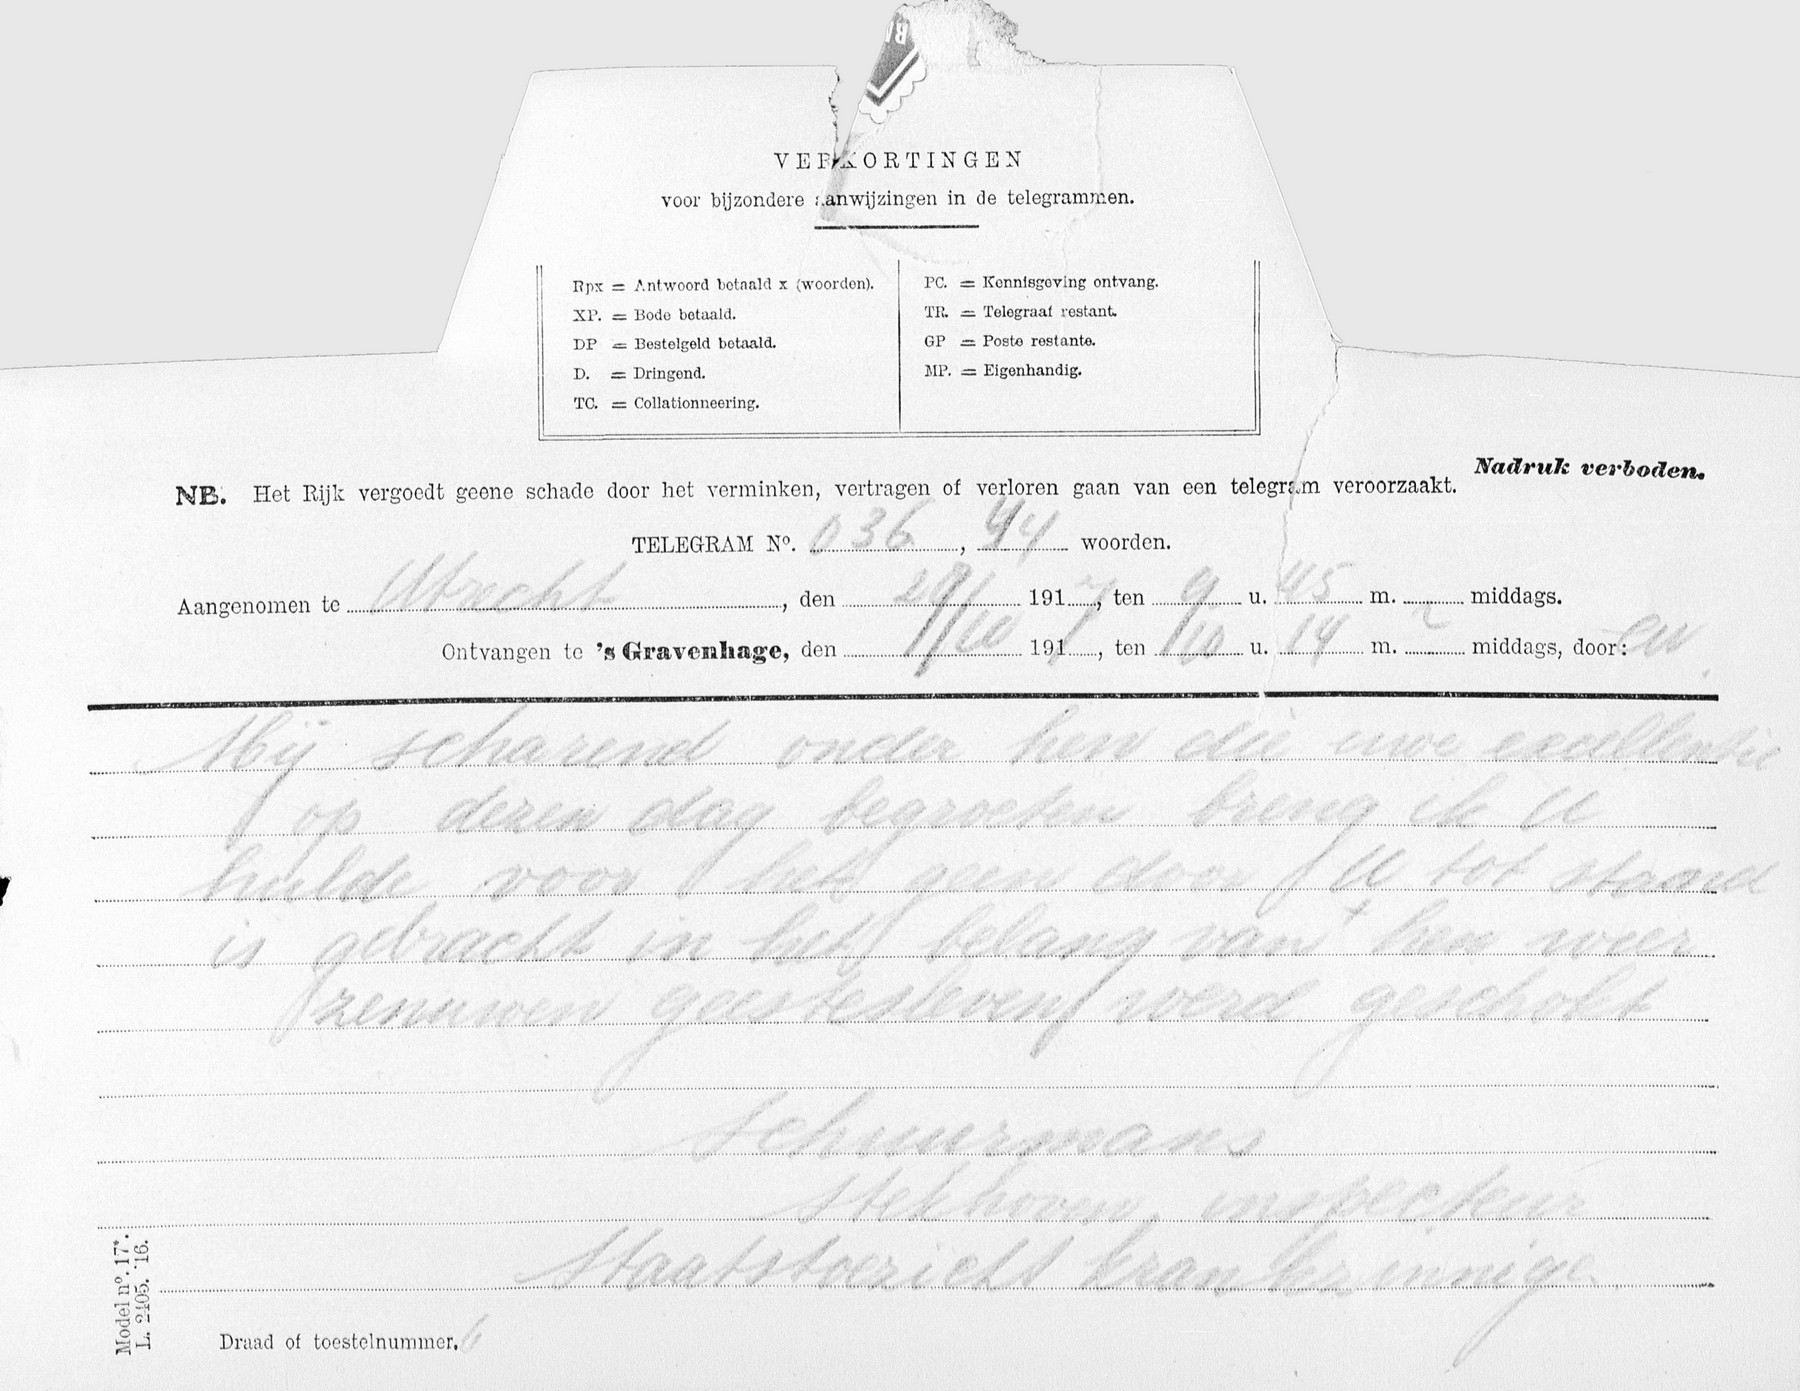 VERKORTINGEN
voor bijzondere aanwijzingen in de telegrammen.
Rpx = Antwoord betaald x (woorden).
XP. = Bode betaald.
DP = Bestelgeld betaald.
D. = Dringend.
TC. = Collationneering.
PC. = Kennisgeving ontvang.
TR. = Telegraaf restant.
GP = Poste restante.
MP. = Eigenhandig.
Nadruk verboden.
NB. Het Rijk vergoedt geene schade door het verminken, vertragen of verloren gaan van een telegram veroorzaakt.
TELEGRAM No. 036, 44 woorden.
Aangenomen te Utrecht, den 29/10 1917, ten 9 u. 45 m. middags.
Ontvangen te 's Gravenhage, den /10 1917, ten 10 u. 14 m. middags, door:
Mij scharend onder hen die uwe excellentie
op dezen dag begroeten breng ik U
hulde voor het geen door U tot stand
is gebracht in het belang van hen wier
zenuwen geestesleven werd geschokt
Schuurmans
Stekhoven, inspecteur
Staatstoezicht krankzinnige
Model no. 17*.
L. 2405. '16.
Draad of toestelnummer. 6